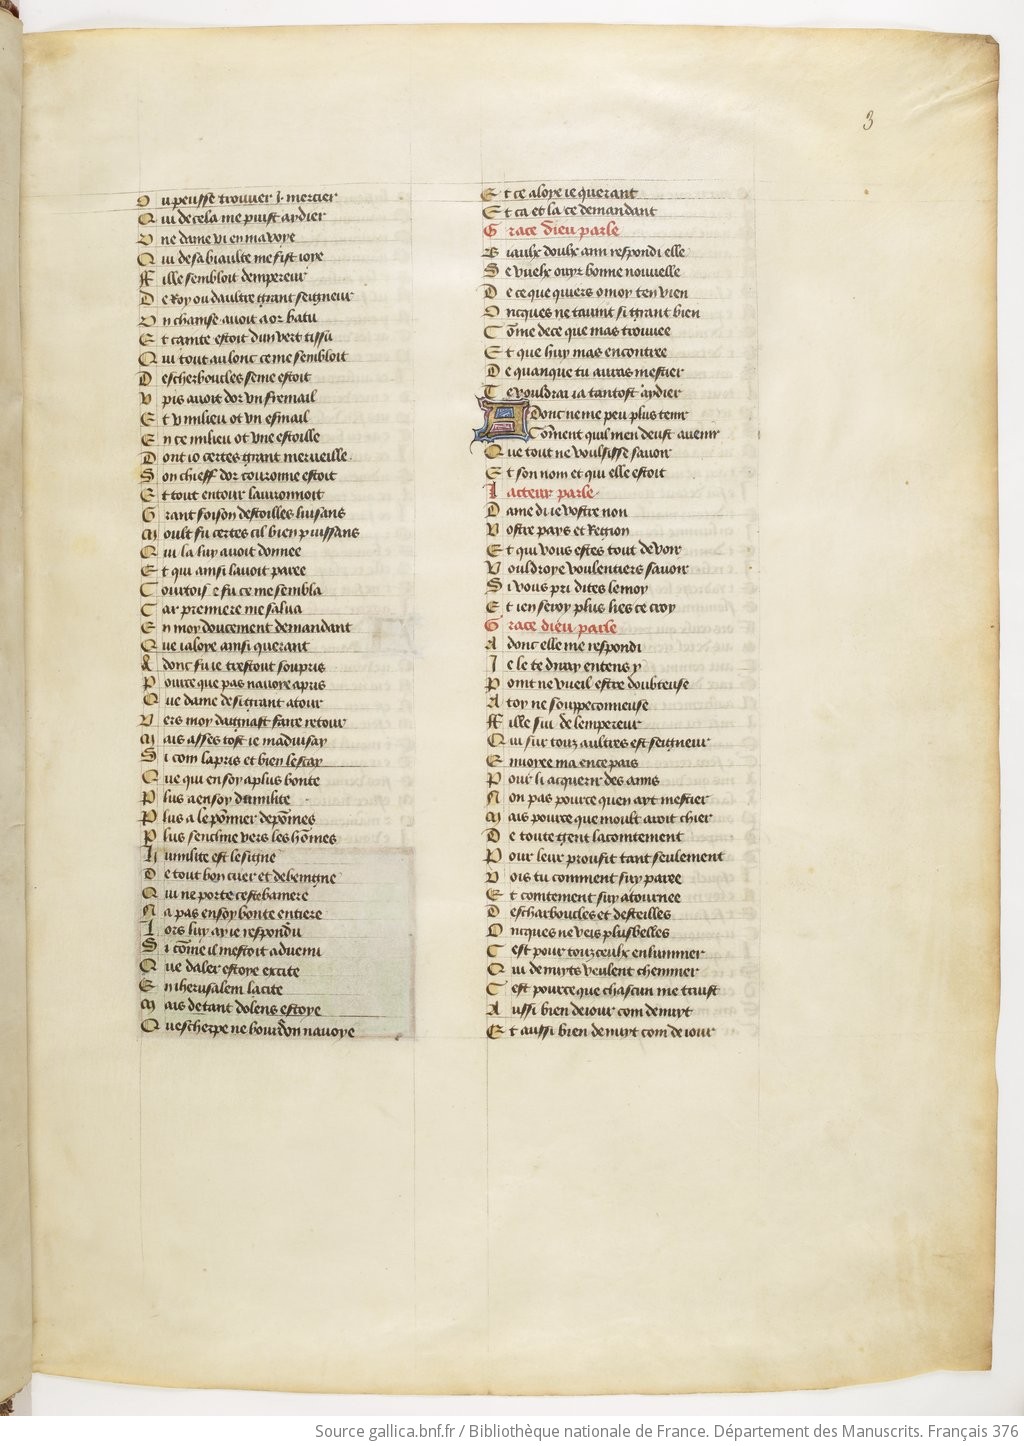 3
O u peusse trouuer j. mercier
Q ui de cela me puist aydier
V ne dame vi en ma voye
Q ui de sa biaulte me fist ioye
FF ille sembloit dempereur
D e Roy ou daultre grant seigneur
V n chainse auoit a or batu
E t cainte estoit dun vert tissu
Q ui tout au lonc ce me sembloit
D escherboucles seme estoit
V pis auoit dor vn fremail
E t v milieu ot vn esmail
E n ce milieu ot vne estoille
D ont io certes grant merueille
S on chieff dor couronne estoit
E t tout entour lauironnoit
G rant foison destoilles luisans
M oult fu certes cil bien puissans
Q ui la luy auoit donnee
E t qui ainsi lauoit paree
C ourtoise fu ce me sembla
C ar premiere me salua
E n moy doucement demandant
Q ue ialoye ainsi querant
A donc fu ie trestout soupris
P ource que pas nauoye apris
Q ue dame de si grant atour
V ers moy daignast faire retour
M ais asses tost ie maduisay
S i com lapris et bien le scay
Q ue qui en soy a plus bonte
P lus a en soy dumilite
P lus a le pōmier de pōmes
P lus sencline vers les hōmes
H umilite est le signe
D e tout bon cuer et de benigne
Q ui ne porte ceste baniere
N a pas en soy bonte entiere
L ors luy ay ie respondu
S i cōme il mestoit aduenu
Q ue daler estoye excite
E n iherusalem la cite
M ais de tant dolens estoye
Q ue scherpe ne bourdon nauoye
E t ce aloye ie querant
E t ca et la ce demandant
G race dieu parle
B iaulx doulx ami respondi elle
S e vuelx ouyr bonne nouuelle
D e ce que quiers o moy ten vien
O ncques ne tauint si grant bien
C ōme de ce que mas trouuee
E t que huy mas encontree
D e quanque tu auras mestier
T e vouldrai ia tantost aydier
A Donc ne me peu plus tenir
Cōment quil men deust auenir
Q ue tout ne voulsisse sauoir
E t son nom et qui elle estoit
L acteur parle
D ame di ie vostre non
V ostre pays et Region
E t qui vous estes tout de voir
V ouldroye voulentiers sauoir
S i vous pri dites le moy
E t ien seroy plus lies ce croy
G race dieu parle
A donc elle me respondi
J e le te diray entens y
P oint ne vueil estre doubteuse
A toy ne souppeconneuse
FF ille sui de lempereur
Q ui sur touz aultres est seigneur
E nuoyee ma en ce pais
P our li acquerir des amis
N on pas pource quen ayt mestier
M ais pource que moult aroit chier
D e toute gent lacointement
P our leur proufit tant seulement
V ois tu comment suy paree
E t cointement suy atournee
D escharboucles et desteilles
O ncques ne veis plus belles
C est pour touz ceulx enluminer
Q ui de nuyts veulent cheminer
C est pource que chascun me truist
A ussi bien de iour com de nuyt
E t aussi bien de nuyt com de iour
Source gallica.bnf.fr / Bibliothèque nationale de France. Département des Manuscrits. Français 376